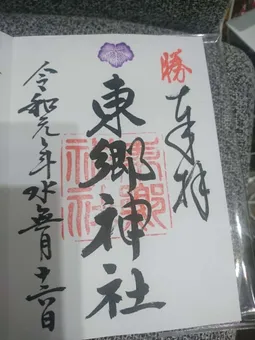 勝
奉拝
東郷神社
令和元年水無月十六日